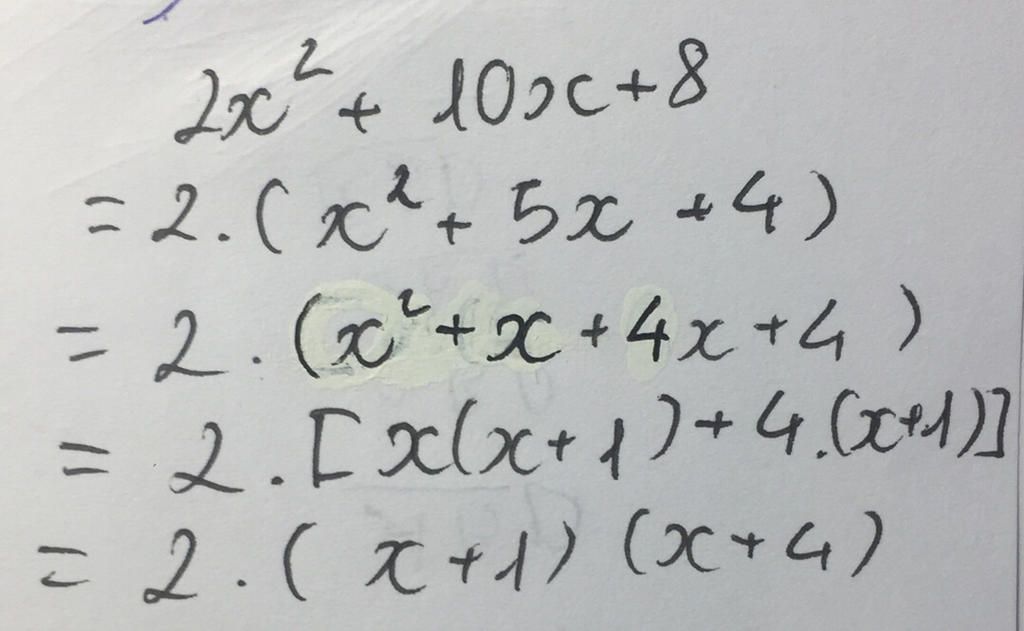 2x² + 10x + 8
= 2. ( x² + 5x + 4 )
= 2 . (x² + x + 4x + 4 )
= 2 . [ x(x+1) + 4.(x+1)]
= 2 . ( x + 1) (x + 4)